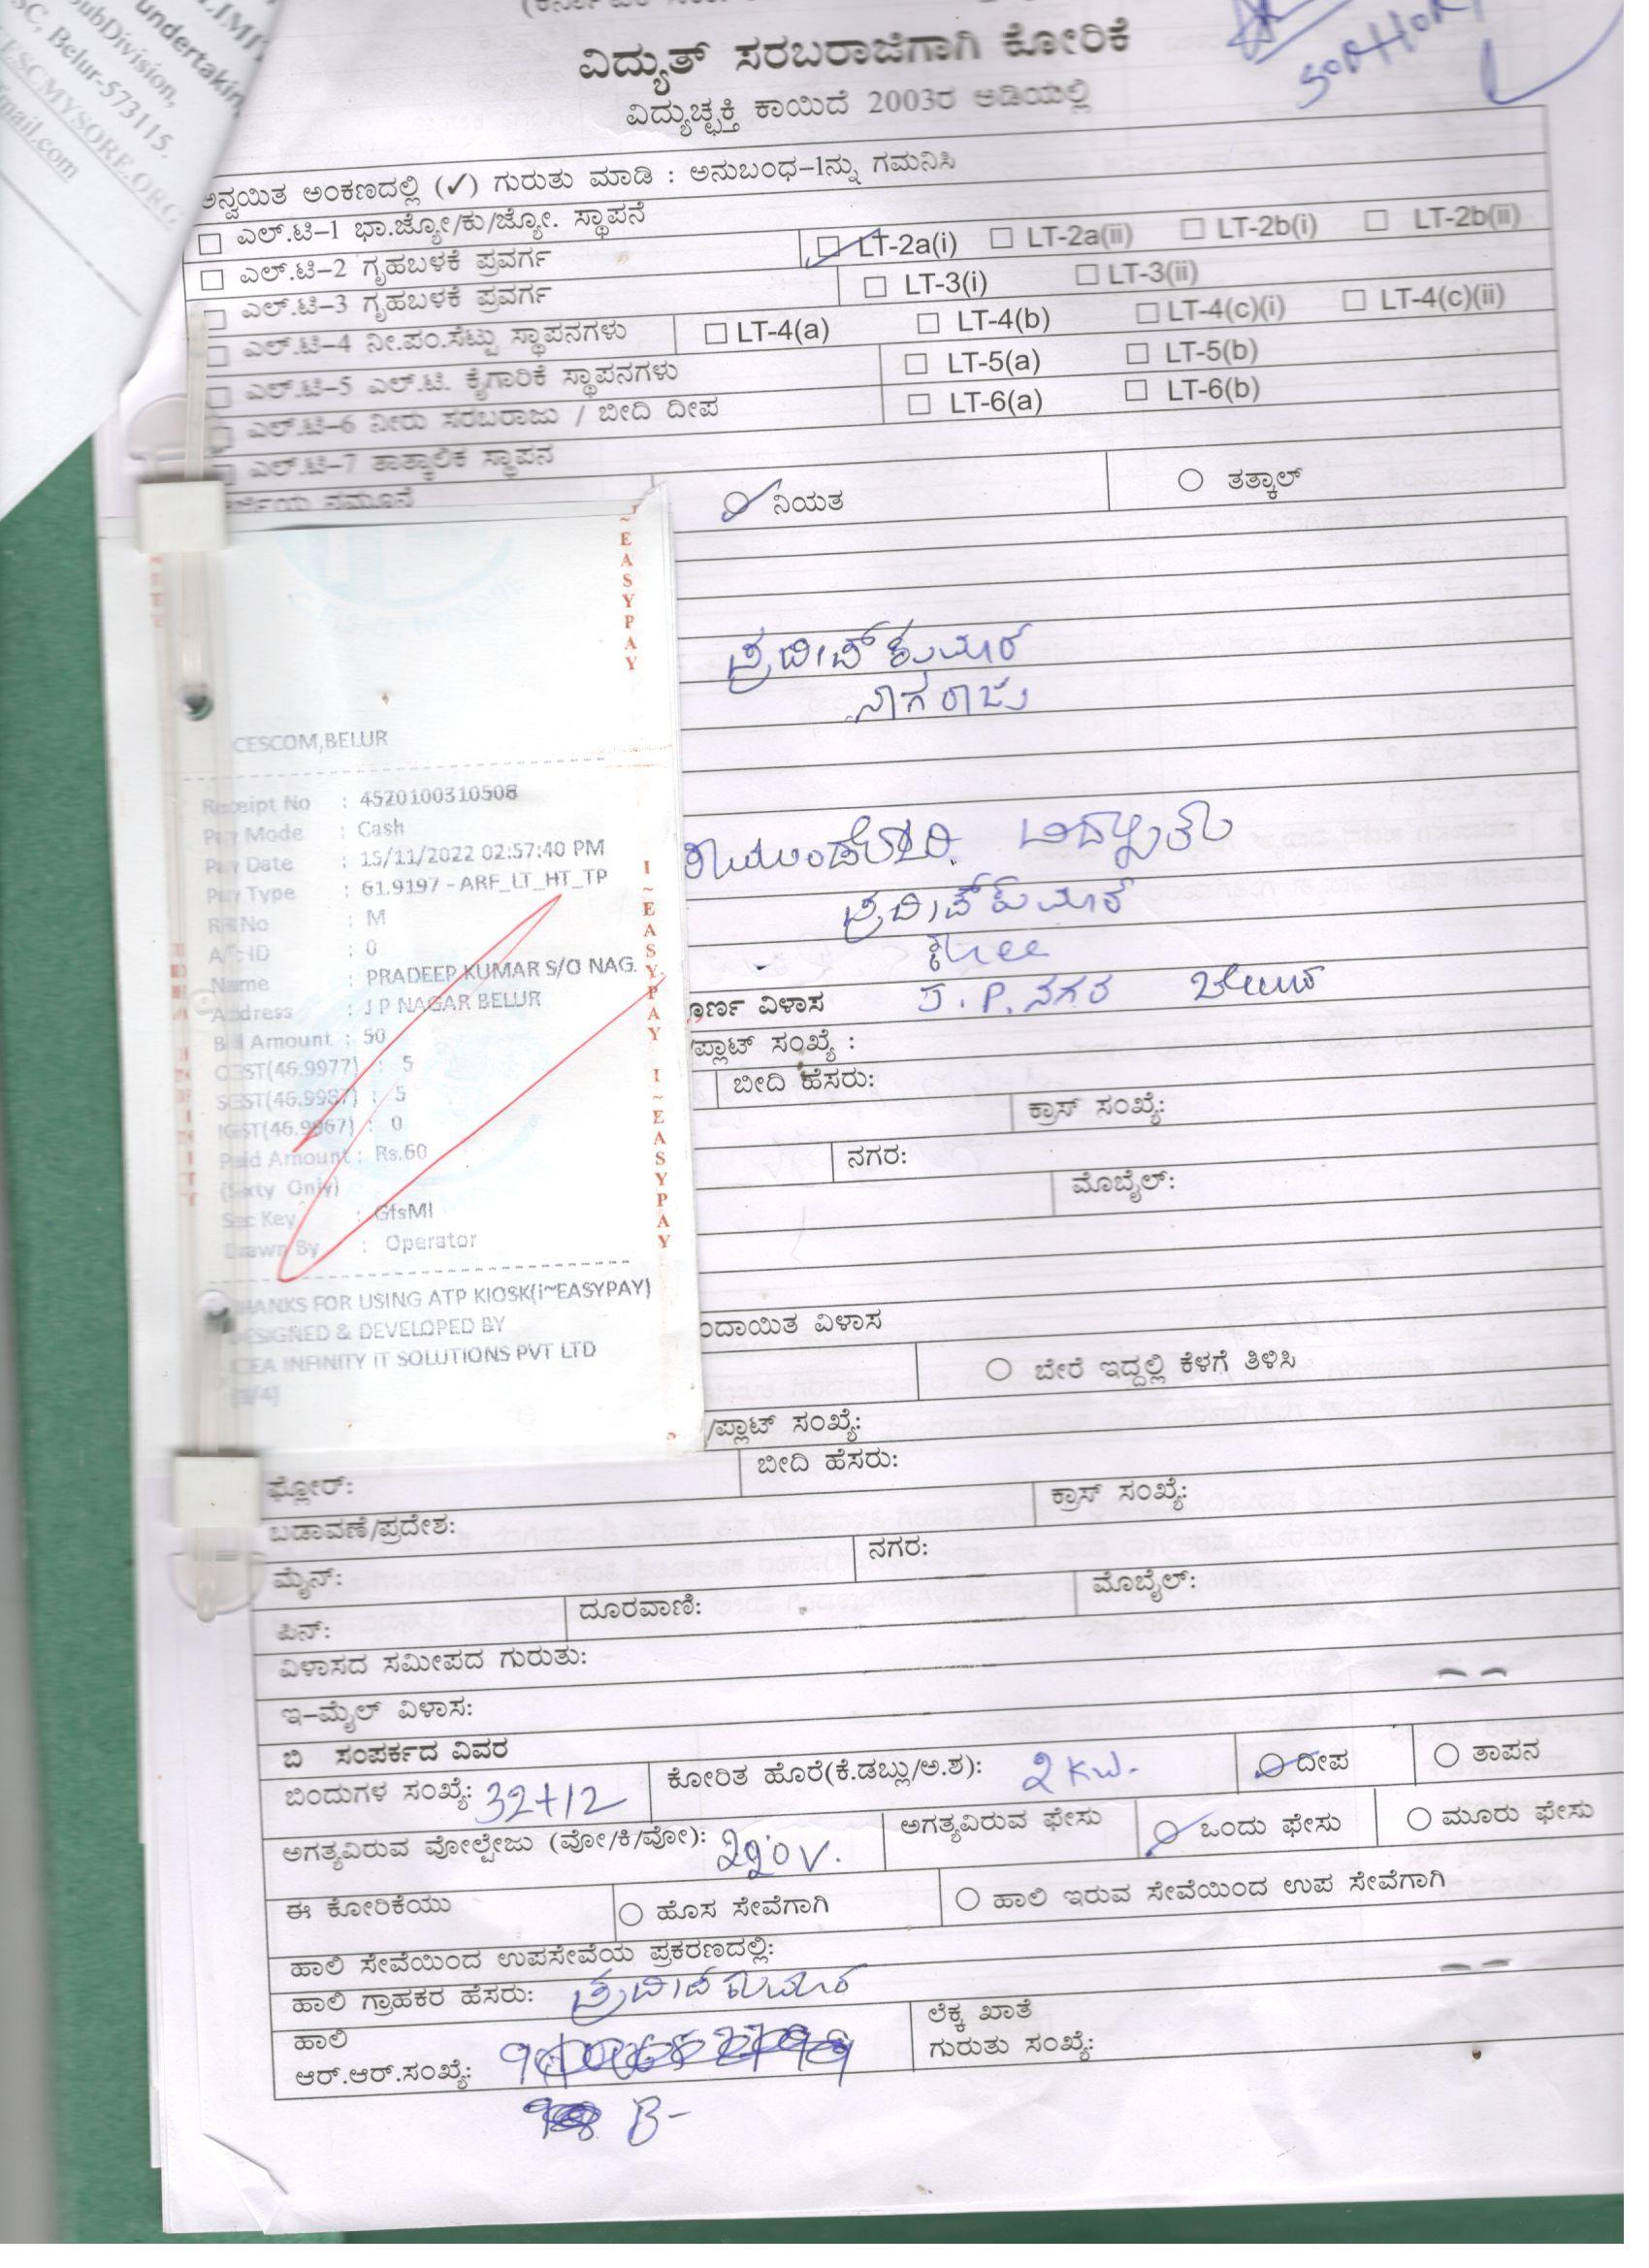 undertakin
ubDivision,
SC, Belur-573115.
ESCMYSORE.ORG
mail.com
ವಿದ್ಯುತ್ ಸರಬರಾಜಿಗಾಗಿ ಕೋರಿಕೆ
ವಿದ್ಯುಚ್ಛಕ್ತಿ ಕಾಯಿದೆ 2003ರ ಅಡಿಯಲ್ಲಿ
ಅನ್ವಯಿತ ಅಂಕಣದಲ್ಲಿ (✓) ಗುರುತು ಮಾಡಿ : ಅನುಬಂಧ–1ನ್ನು ಗಮನಿಸಿ
ಎಲ್.ಟಿ–1 ಭಾ.ಜ್ಯೋ/ಕು/ಜ್ಯೋ. ಸ್ಥಾಪನೆ
ಎಲ್.ಟಿ–2 ಗೃಹಬಳಕೆ ಪ್ರವರ್ಗ LT-2a(i) LT-2a(ii) LT-2b(i) LT-2b(ii)
ಎಲ್.ಟಿ–3 ಗೃಹಬಳಕೆ ಪ್ರವರ್ಗ LT-3(i) LT-3(ii)
ಎಲ್.ಟಿ–4 ನೀ.ಪಂ.ಸೆಟ್ಟು ಸ್ಥಾಪನಗಳು LT-4(a) LT-4(b) LT-4(c)(i) LT-4(c)(ii)
ಎಲ್.ಟಿ–5 ಎಲ್.ಟಿ. ಕೈಗಾರಿಕೆ ಸ್ಥಾಪನಗಳು LT-5(a) LT-5(b)
ಎಲ್.ಟಿ–6 ನೀರು ಸರಬರಾಜು / ಬೀದಿ ದೀಪ LT-6(a) LT-6(b)
ಎಲ್.ಟಿ–7 ತಾತ್ಕಾಲಿಕ ಸ್ಥಾಪನ
ನಮೂನೆ ನಿಯತ ತತ್ಕಾಲ್
ಪ್ರದೀಪ್ ಕುಮಾರ
ನಾಗರಾಜು
ಪ್ರದೀಪ್ ಕುಮಾರ
ಪೂರ್ಣ ವಿಳಾಸ J.P. ನಗರ ಬೇಲೂರು
/ಪ್ಲಾಟ್ ಸಂಖ್ಯೆ :
ಬೀದಿ ಹೆಸರು:
ಕ್ರಾಸ್ ಸಂಖ್ಯೆ:
ನಗರ:
ಮೊಬೈಲ್:
I~EASYPAY
CESCOM,BELUR
Receipt No : 4520100310508
Pay Mode : Cash
Pay Date : 15/11/2022 02:57:40 PM
Pay Type : 61.9197 - ARF_LT_HT_TP
RR No : M
A/c ID : 0
Name : PRADEEP KUMAR S/O NAG.
Address : J P NAGAR BELUR
Bill Amount : 50
CGST(46.9977) : 5
SGST(46.9987) : 5
IGST(46.9967) : 0
Paid Amount : Rs.60
(Sixty Only)
Sec Key : GfsMI
Drawn By : Operator
THANKS FOR USING ATP KIOSK(i~EASYPAY)
DESIGNED & DEVELOPED BY
IDEA INFINITY IT SOLUTIONS PVT LTD
I~EASYPAY I~EASYPAY
ಂದಾಯಿತ ವಿಳಾಸ
ಬೇರೆ ಇದ್ದಲ್ಲಿ ಕೆಳಗೆ ತಿಳಿಸಿ
/ಪ್ಲಾಟ್ ಸಂಖ್ಯೆ:
ಫ್ಲೋರ್: ಬೀದಿ ಹೆಸರು:
ಬಡಾವಣೆ/ಪ್ರದೇಶ: ಕ್ರಾಸ್ ಸಂಖ್ಯೆ:
ಮೈನ್: ನಗರ:
ಪಿನ್: ದೂರವಾಣಿ: ಮೊಬೈಲ್:
ವಿಳಾಸದ ಸಮೀಪದ ಗುರುತು:
ಇ–ಮೈಲ್ ವಿಳಾಸ:
ಬಿ ಸಂಪರ್ಕದ ವಿವರ
ಬಿಂದುಗಳ ಸಂಖ್ಯೆ: 32+12 ಕೋರಿತ ಹೊರೆ(ಕೆ.ಡಬ್ಲು/ಅ.ಶ): 2 KW. ದೀಪ ತಾಪನ
ಅಗತ್ಯವಿರುವ ವೋಲ್ಟೇಜು (ವೋ/ಕಿ/ವೋ): 220V. ಅಗತ್ಯವಿರುವ ಫೇಸು ಒಂದು ಫೇಸು ಮೂರು ಫೇಸು
ಈ ಕೋರಿಕೆಯು ಹೊಸ ಸೇವೆಗಾಗಿ ಹಾಲಿ ಇರುವ ಸೇವೆಯಿಂದ ಉಪ ಸೇವೆಗಾಗಿ
ಹಾಲಿ ಸೇವೆಯಿಂದ ಉಪಸೇವೆಯ ಪ್ರಕರಣದಲ್ಲಿ:
ಹಾಲಿ ಗ್ರಾಹಕರ ಹೆಸರು: ಪ್ರದೀಪ ಕುಮಾರ
ಹಾಲಿ
ಆರ್.ಆರ್.ಸಂಖ್ಯೆ:
ಲೆಕ್ಕ ಖಾತೆ
ಗುರುತು ಸಂಖ್ಯೆ:
B-